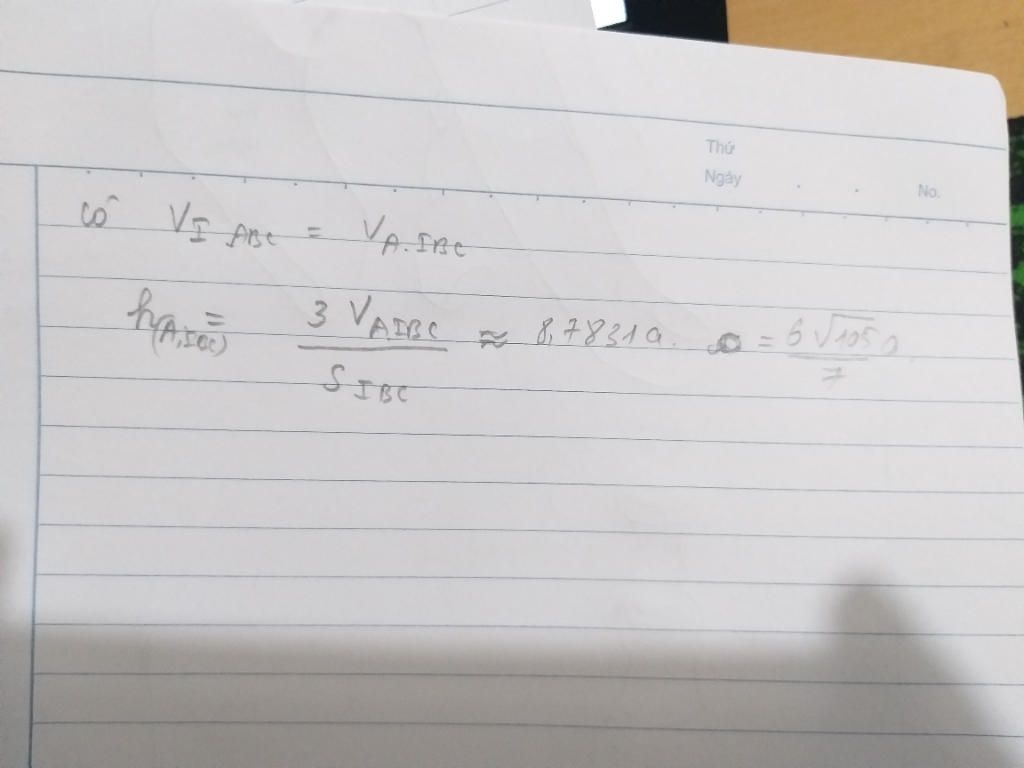 Thứ
Ngày . . No.
có V_I ABC = V_A.IBC
h_(A,IBC) = 3 V_AIBC / S_IBC ≈ 8,7831a. = 6√105 a / 7